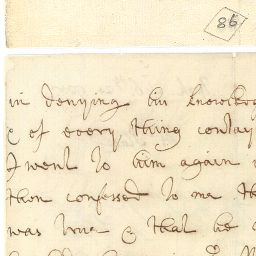 86
in denying his knowledg
& of every thing contay
I went to him again
then confessed to me th
was true & that he